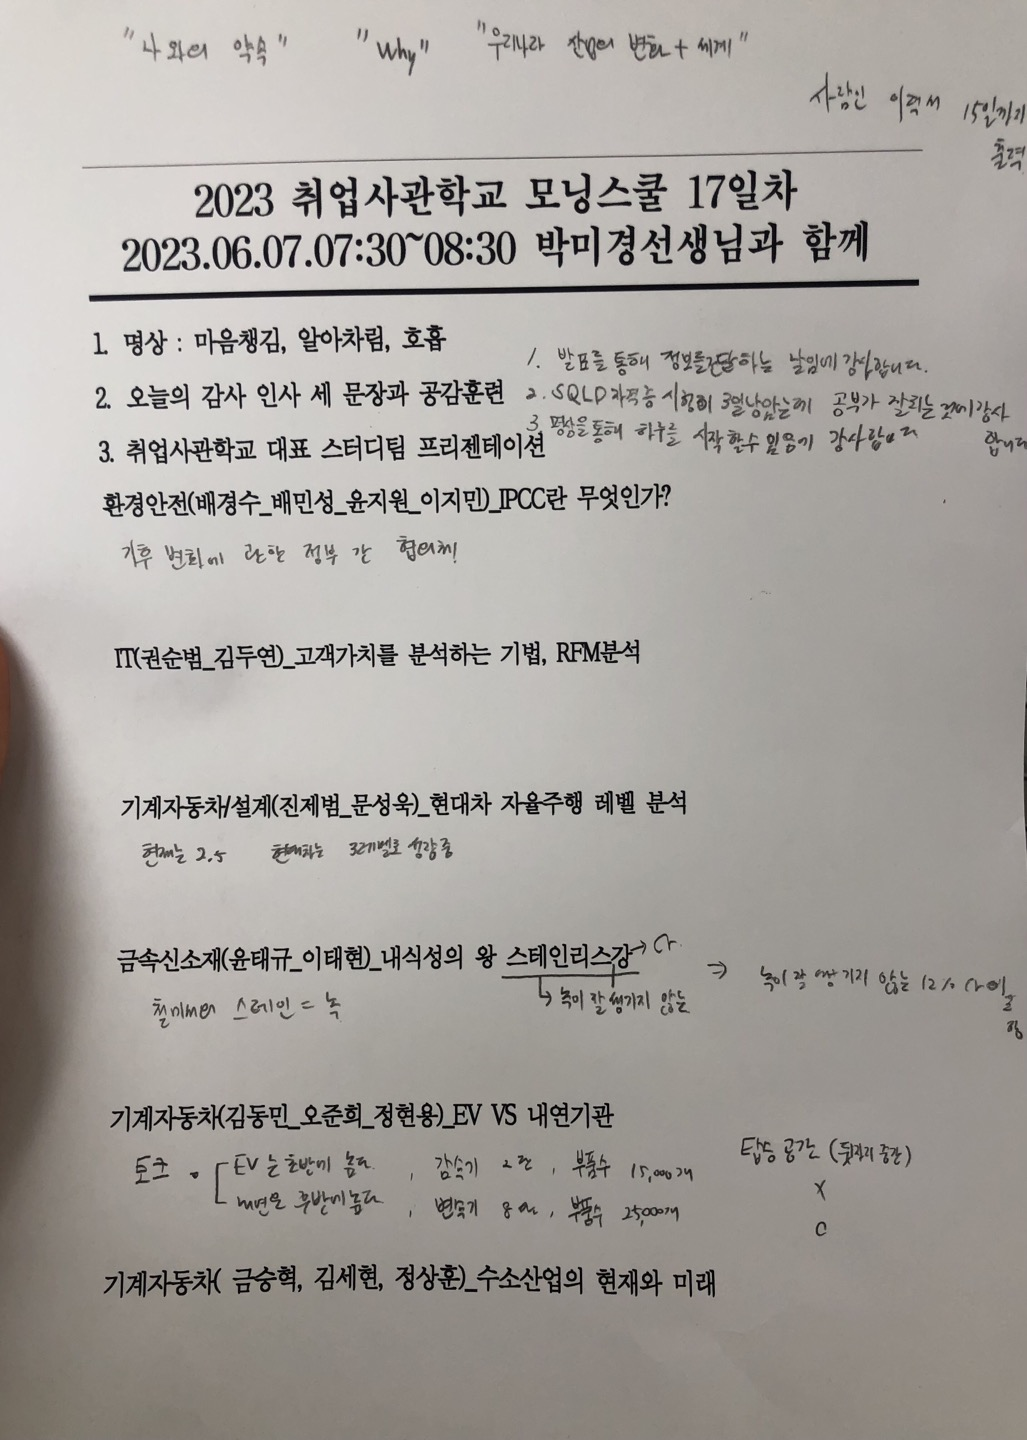 "나와의 약속" "Why" "우리나라 산업의 변화 + 세계"
사람인 이력서 15일까지
출력
2023 취업사관학교 모닝스쿨 17일차
2023.06.07.07:30~08:30 박미경선생님과 함께
1. 명상 : 마음챙김, 알아차림, 호흡
2. 오늘의 감사 인사 세 문장과 공감훈련
1. 발표를 통해 정보를 전달하는 날임에 감사합니다.
2. SQLD 자격증 시험이 3일 남았는데 공부가 잘되는 것에 감사
합니다
3. 명상을 통해 하루를 시작할 수 있음에 감사합니다
3. 취업사관학교 대표 스터디팀 프리젠테이션
환경안전(배경수_배민성_윤지원_이지민)_IPCC란 무엇인가?
기후 변화에 관한 정부 간 협의체!
IT(권순범_김두연)_고객가치를 분석하는 기법, RFM분석
기계자동차/설계(진제범_문성욱)_현대차 자율주행 레벨 분석
현재는 2.5 현대차는 3레벨로 성장중
금속신소재(윤태규_이태현)_내식성의 왕 스테인리스강 → Cr
철에서의 스테인 = 녹
↳ 녹이 잘 생기지 않는
⇒ 녹이 잘 생기지 않는 12% Cr이
기계자동차(김동민_오준희_정현용)_EV VS 내연기관
토크 EV는 초반에 높다, 감속기 2단, 부품수 15,000개
내연은 후반에 높다, 변속기 8단, 부품수 25,000개
탑승공간 (뒷자리 중간)
X
O
기계자동차( 금승혁, 김세현, 정상훈)_수소산업의 현재와 미래